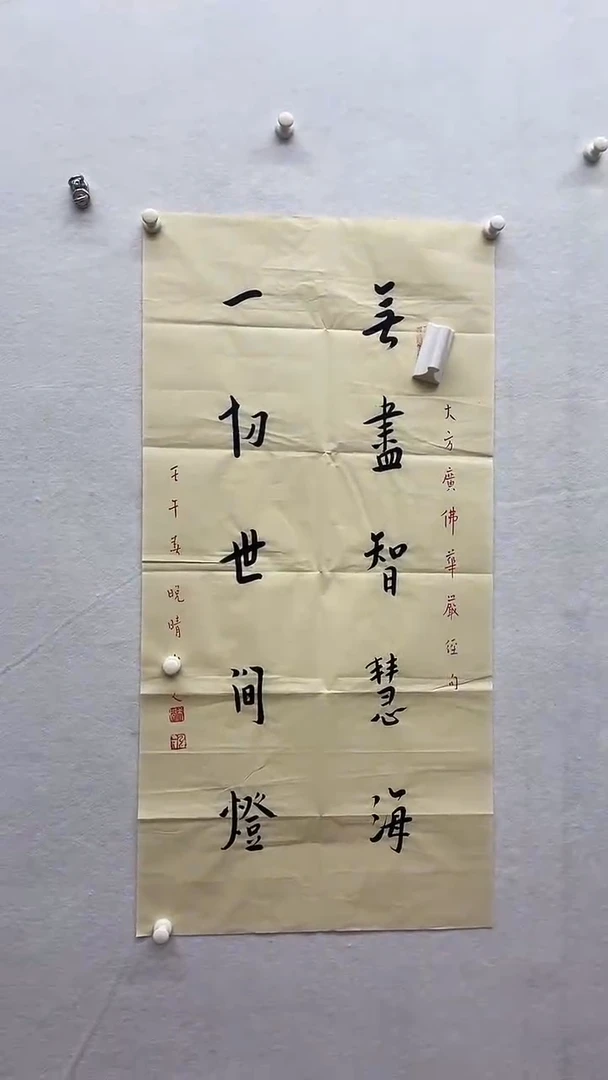 大方廣佛華嚴經句
無盡智慧海
一切世間燈
壬午春晓晴